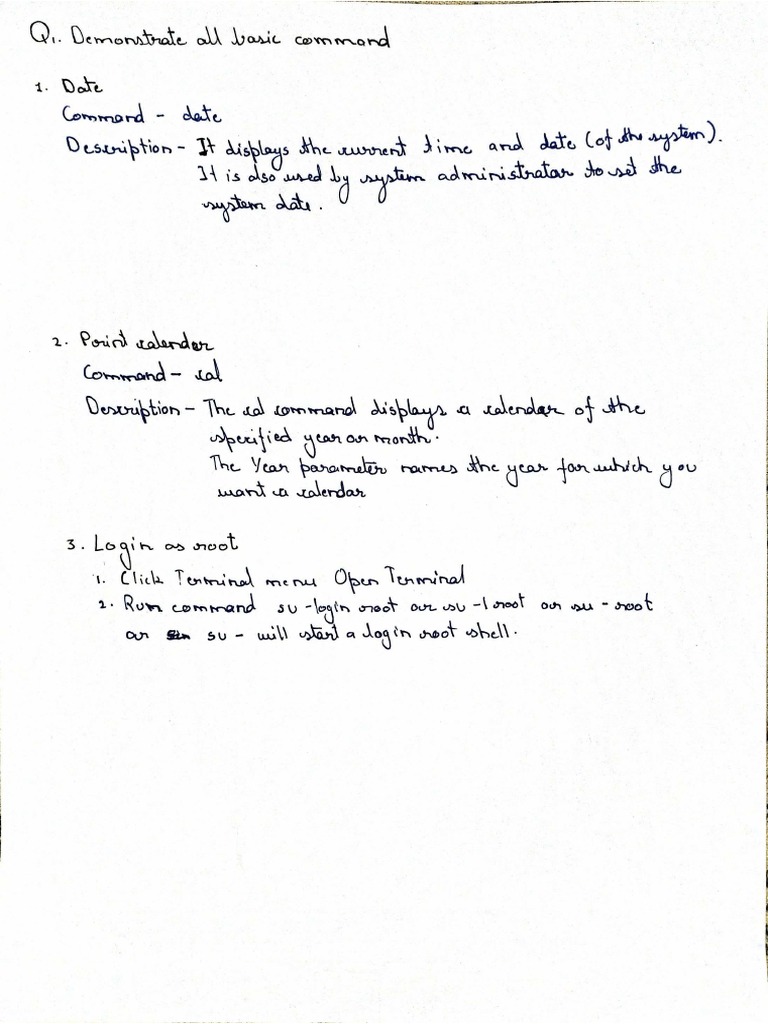 Q1. Demonstrate all basic command
1. Date
Command - date
Description - It displays the current time and date (of the system).
It is also used by system administratar to set the
system date.
2. Print calender
Command - cal
Description - The cal command displays a calendar of the
specified year or month.
The Year parameter names the year for which you
want a calendar
3. Login as root
1. Click Terminal menu Open Terminal
2. Run command su -login root or su -l root or su - root
or su - will start a login root shell.